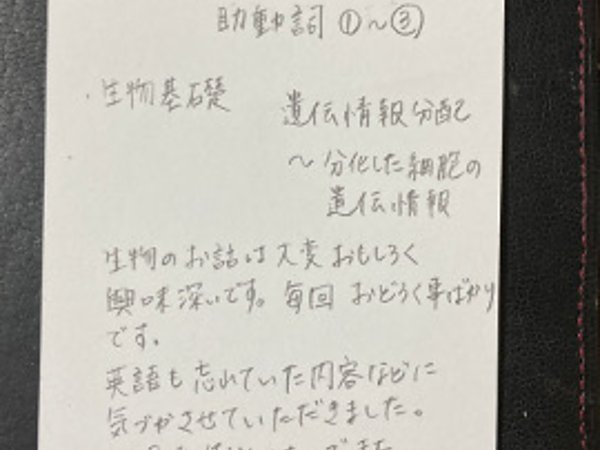 助動詞 ①～③
・生物基礎
遺伝情報分配
～分化した細胞の
遺伝情報
生物のお話は大変おもしろく
興味深いです。毎回 おどろく事ばかり
です。
英語も忘れていた内容などに
気づかさせていただきました。